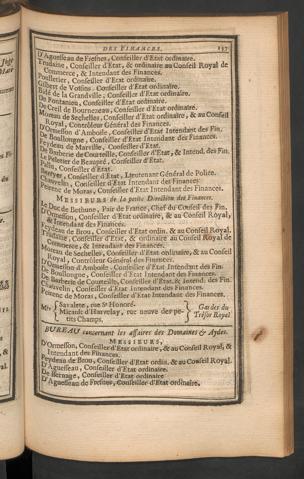 DES FINANCES. 137
D'Aguesseau de Fresnes, Conseiller d'Etat ordinaire.
Trudaine, Conseiller d'Etat, & ordinaire au Conseil Royal de
Commerce, & Intendant des Finances.
Pouilletier, Conseiller d'Etat.
Gilbert de Voisins, Conseiller d'Etat ordinaire.
Bidé de la Grandville, Conseiller d'Etat ordinaire.
De Fontanieu, Conseiller d'Etat ordinaire.
De Creil de Bournezeau, Conseiller d'Etat.
Moreau de Sechelles, Conseiller d'Etat ordinaire, & au Conseil
Royal, Contrôleur Général des Finances.
D'Ormesson d'Amboile, Conseiller d'Etat Intendant des Fin.
De Boullongne, Conseiller d'Etat Intendant des Finances.
Feydeau de Marville, Conseiller d'Etat.
De Barberie de Courteille, Conseiller d'Etat, & Intend. des Fin.
Le Peletier de Beaupré, Conseiller d'Etat.
Pallu, Conseiller d'Etat.
Berryer, Conseiller d'Etat, Lieutenant Général de Police.
Chauvelin, Conseiller d'Etat Intendant des Finances.
Peirenc de Moras, Conseiller d'Etat Intendant des Finances.
MESSIEURS de la petite Direction des Finances.
Le Duc de Bethune, Pair de France, Chef du Conseil des Fin.
D'Ormesson, Conseiller d'Etat ordinaire, & au Conseil Royal,
& Intendant des Finances.
Feydeau de Brou, Conseiller d'Etat ordin. & au Conseil Royal.
Trudaine, Conseiller d'Etat, & ordinaire au Conseil Royal de
Commerce, & Intendant des Finances.
Moreau de Sechelles, Conseiller d'Etat ordinaire, & au Conseil
Royal, Contrôleur Général des Finances.
D'Ormesson d'Amboile, Conseiller d'Etat Intendant des Fin.
De Boullongne, Conseiller d'Etat Intendant des Finances.
De Barberie de Courteille, Conseiller d'Etat, & Intend. des Fin.
Chauvelin, Conseiller d'Etat Intendant des Finances.
Peirenc de Moras, Conseiller d'Etat Intendant des Finances.
Mrs { Savalete, rue St Honoré.
Micault d'Harvelay, rue neuve des petits Champs. } Gardes du
Trésor Royal
BUREAU concernant les affaires des Domaines & Aydes.
MESSIEURS,
D'Ormesson, Conseiller d'Etat ordinaire, & au Conseil Royal, &
Intendant des Finances.
Feydeau de Brou, Conseiller d'Etat ordin. & au Conseil Royal.
D'Aguesseau, Conseiller d'Etat ordinaire.
De Bernage, Conseiller d'Etat ordinaire
D'Aguesseau de Fresnes, Conseiller d'Etat ordinaire.